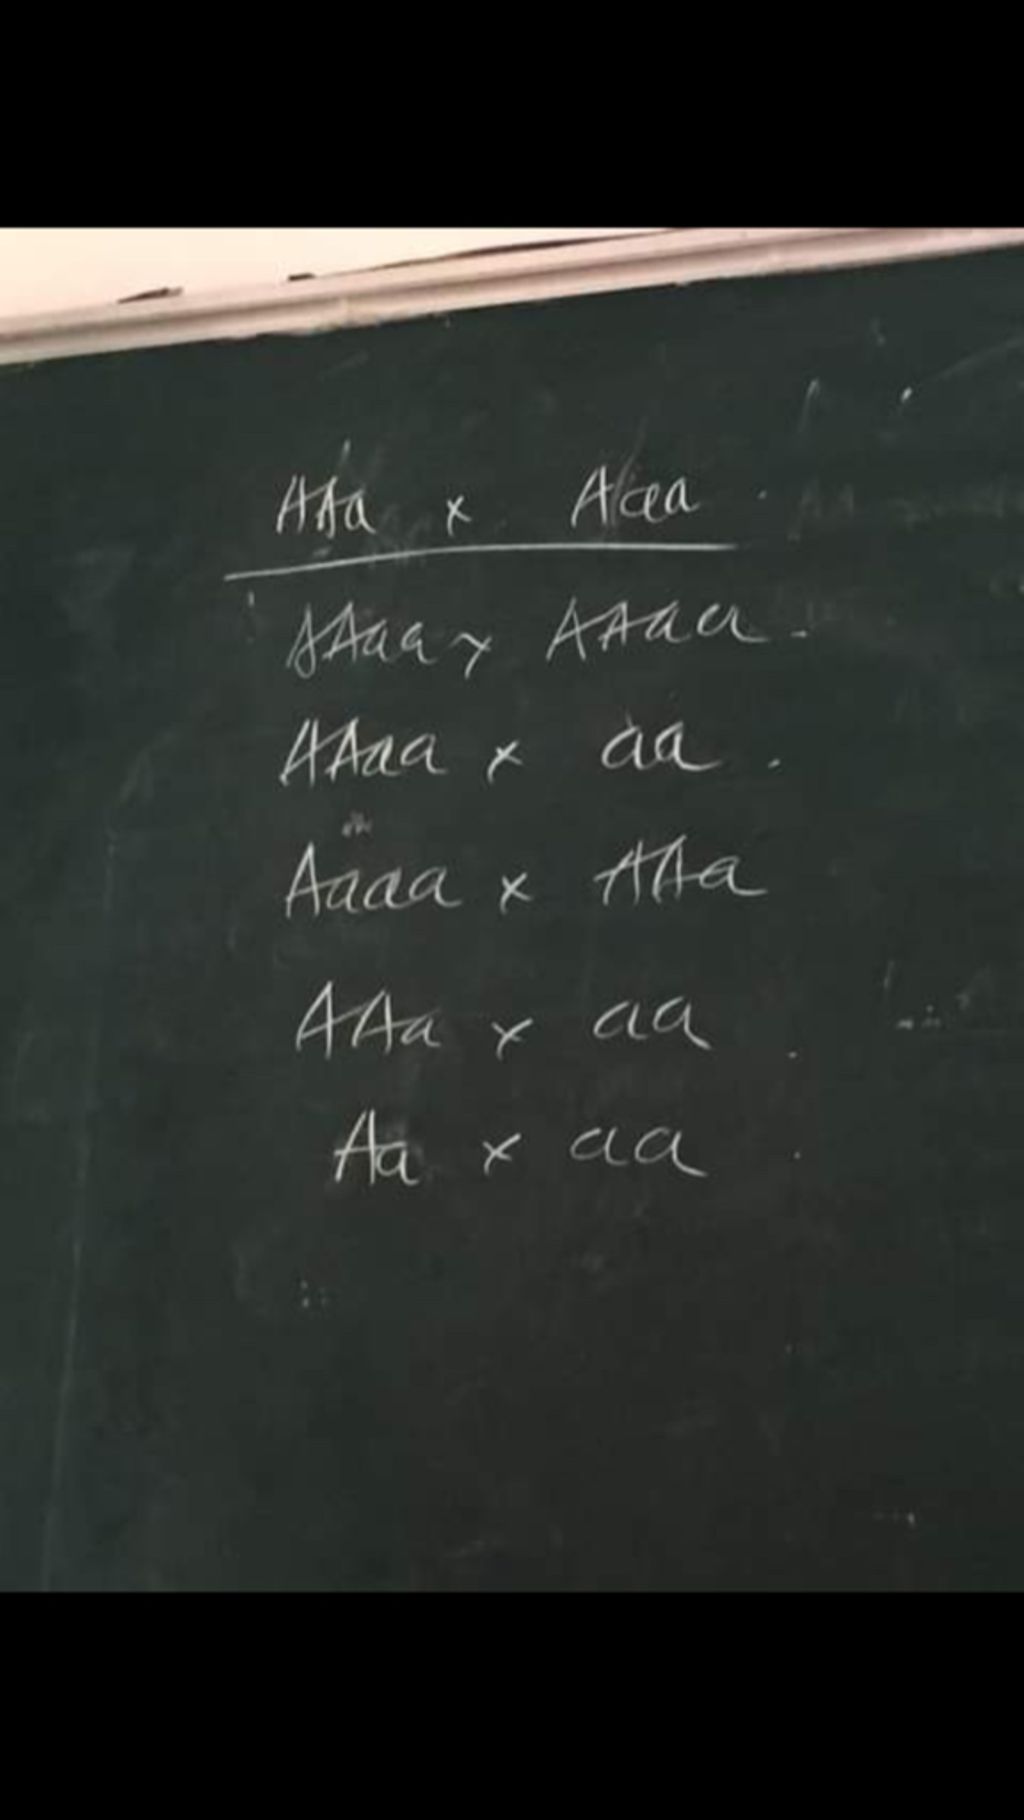 AAa x Aaa
AAaa x AAaa.
AAaa x aa.
Aaaa x AAa
AAa x aa
Aa x aa